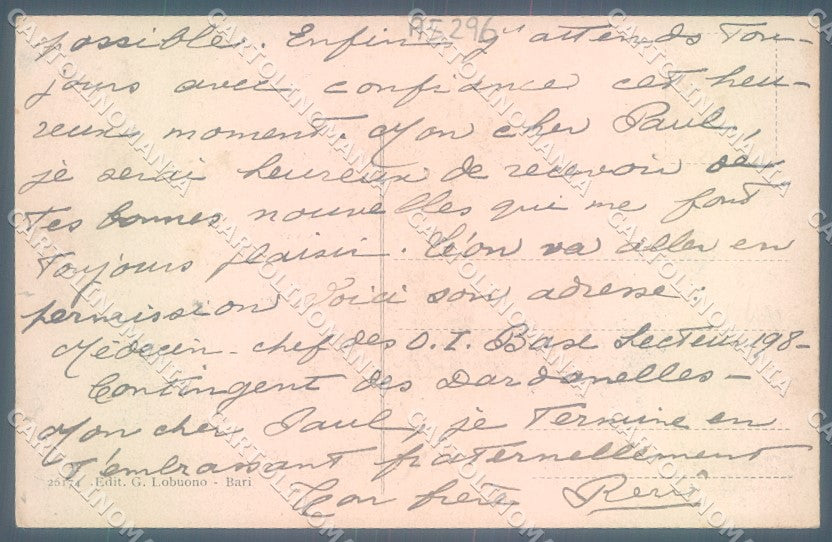 AF296
possible. Enfin j'attends tou-
jours avec confiance cet heu-
reux moment. Mon cher Paul,
je serai heureux de recevoir de
tes bonnes nouvelles qui me font
toujours plaisir. Léon va aller en
permission Voici son adresse :
Médecin-chef des O.I. Base Secteur 198-
Contingent des Dardanelles-
Mon cher Paul, je termine en
t'embrassant fraternellement
Ton frère René
25171 Edit. G. Lobuono - Bari
CARTOLINOMANIA